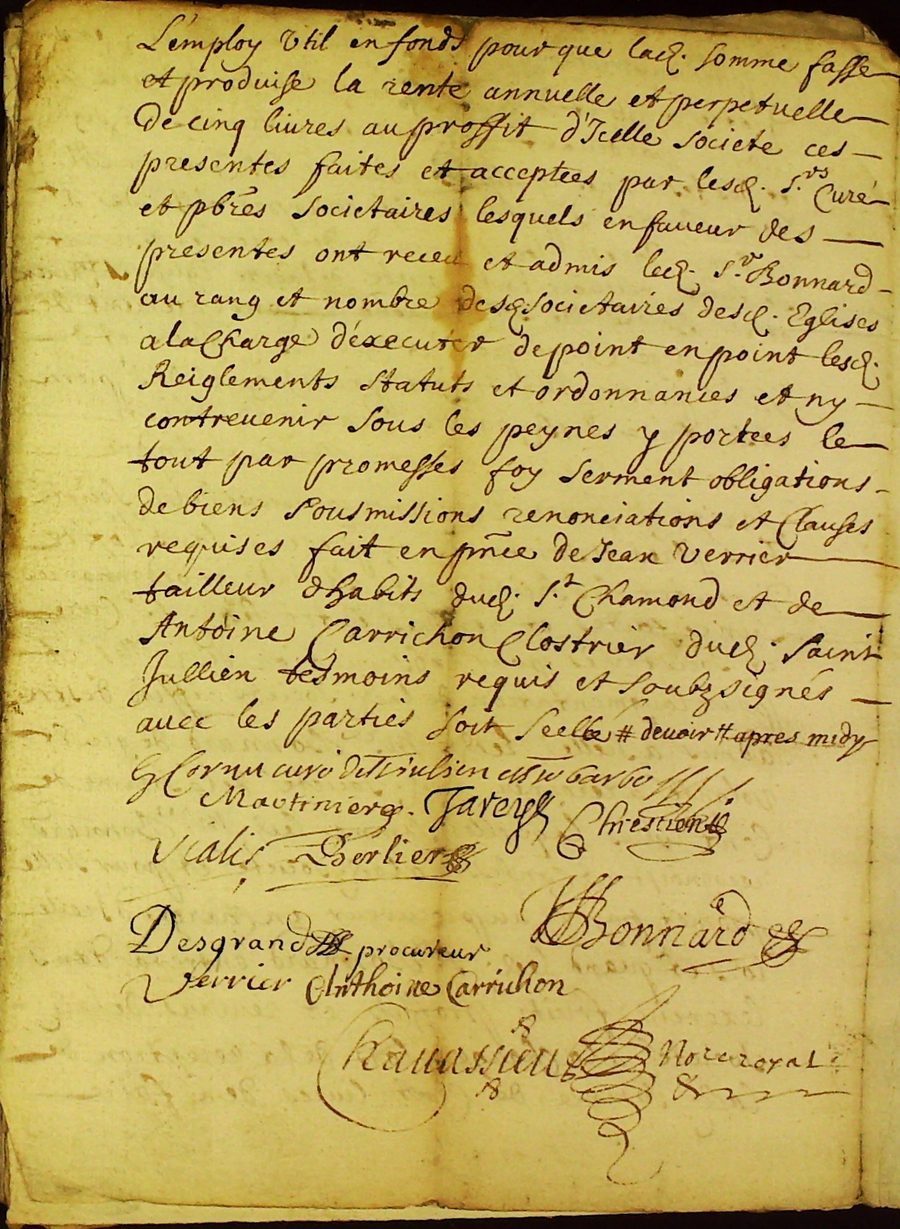 L'employ Util en fonds pour que lad. somme fasse
et produise la rente annuelle et perpetuelle
De cinq liures au proffit d'Icelle societe ces
presentes faites et acceptées par lesd. S.rs Curé
et pbres Societaires lesquels en faueur des
presentes ont receu et admis led. S.r Bonnard
au rang et nombre desd. societaires desd. Eglises
a la Charge d'éxecuter de point en point lesd.
Reiglements statuts et ordonnances et ny
contreuenir sous les peynes y portées le
tout par promesses foy serment obligations
de biens sousmissions renonciations et Clauses
requises fait en pnce de Jean Verrier
tailleur d'habits dud. S.t Chamond et de
Antoine Carrichon Clostrier dud. saint
Jullien tesmoins requis et soubzsignés
auec les parties soit seellé # devoir # apres midy
Cornu curé de St Julien
Martinier. Jarey Chrestien
Vialis Dherlier
Desgrand procureur Bonnard
Verrier Anthoine Carrichon
Chauassieu Not.re royal